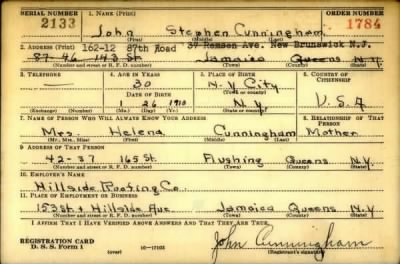 SERIAL NUMBER 1. NAME (Print) ORDER NUMBER
2133 John Stephen Cunningham 1784
2. ADDRESS (Print) 162-12 87th Road 37 Remsen Ave. New Brunswick N.J.
87-46 - 143 St Jamaica Queens N.Y
(Number and street or R. F. D. number) (Town) (County) (State)
3. TELEPHONE 4. AGE IN YEARS 5. PLACE OF BIRTH 6. COUNTRY OF CITIZENSHIP
— 30 N.Y City
DATE OF BIRTH (Town or county)
1 26 1910 N.Y U.S.A
(Exchange) (Number) (Mo.) (Day) (Yr.) (State or country)
7. NAME OF PERSON WHO WILL ALWAYS KNOW YOUR ADDRESS 8. RELATIONSHIP OF THAT PERSON
Mrs. Helena Cunningham Mother
(Mr., Mrs., Miss) (First) (Middle) (Last)
9. ADDRESS OF THAT PERSON
42-37 165 St. Flushing Queens N.Y.
(Number and street or R. F. D. number) (Town) (County) (State)
10. EMPLOYER'S NAME
Hillside Roofing Co.
11. PLACE OF EMPLOYMENT OR BUSINESS
153 St + Hillside Ave Jamaica Queens N.Y.
(Number and street or R. F. D. number) (Town) (County) (State)
I AFFIRM THAT I HAVE VERIFIED ABOVE ANSWERS AND THAT THEY ARE TRUE.
REGISTRATION CARD John Cunningham
D. S. S. Form 1 (over) 16-17105 (Registrant's signature)